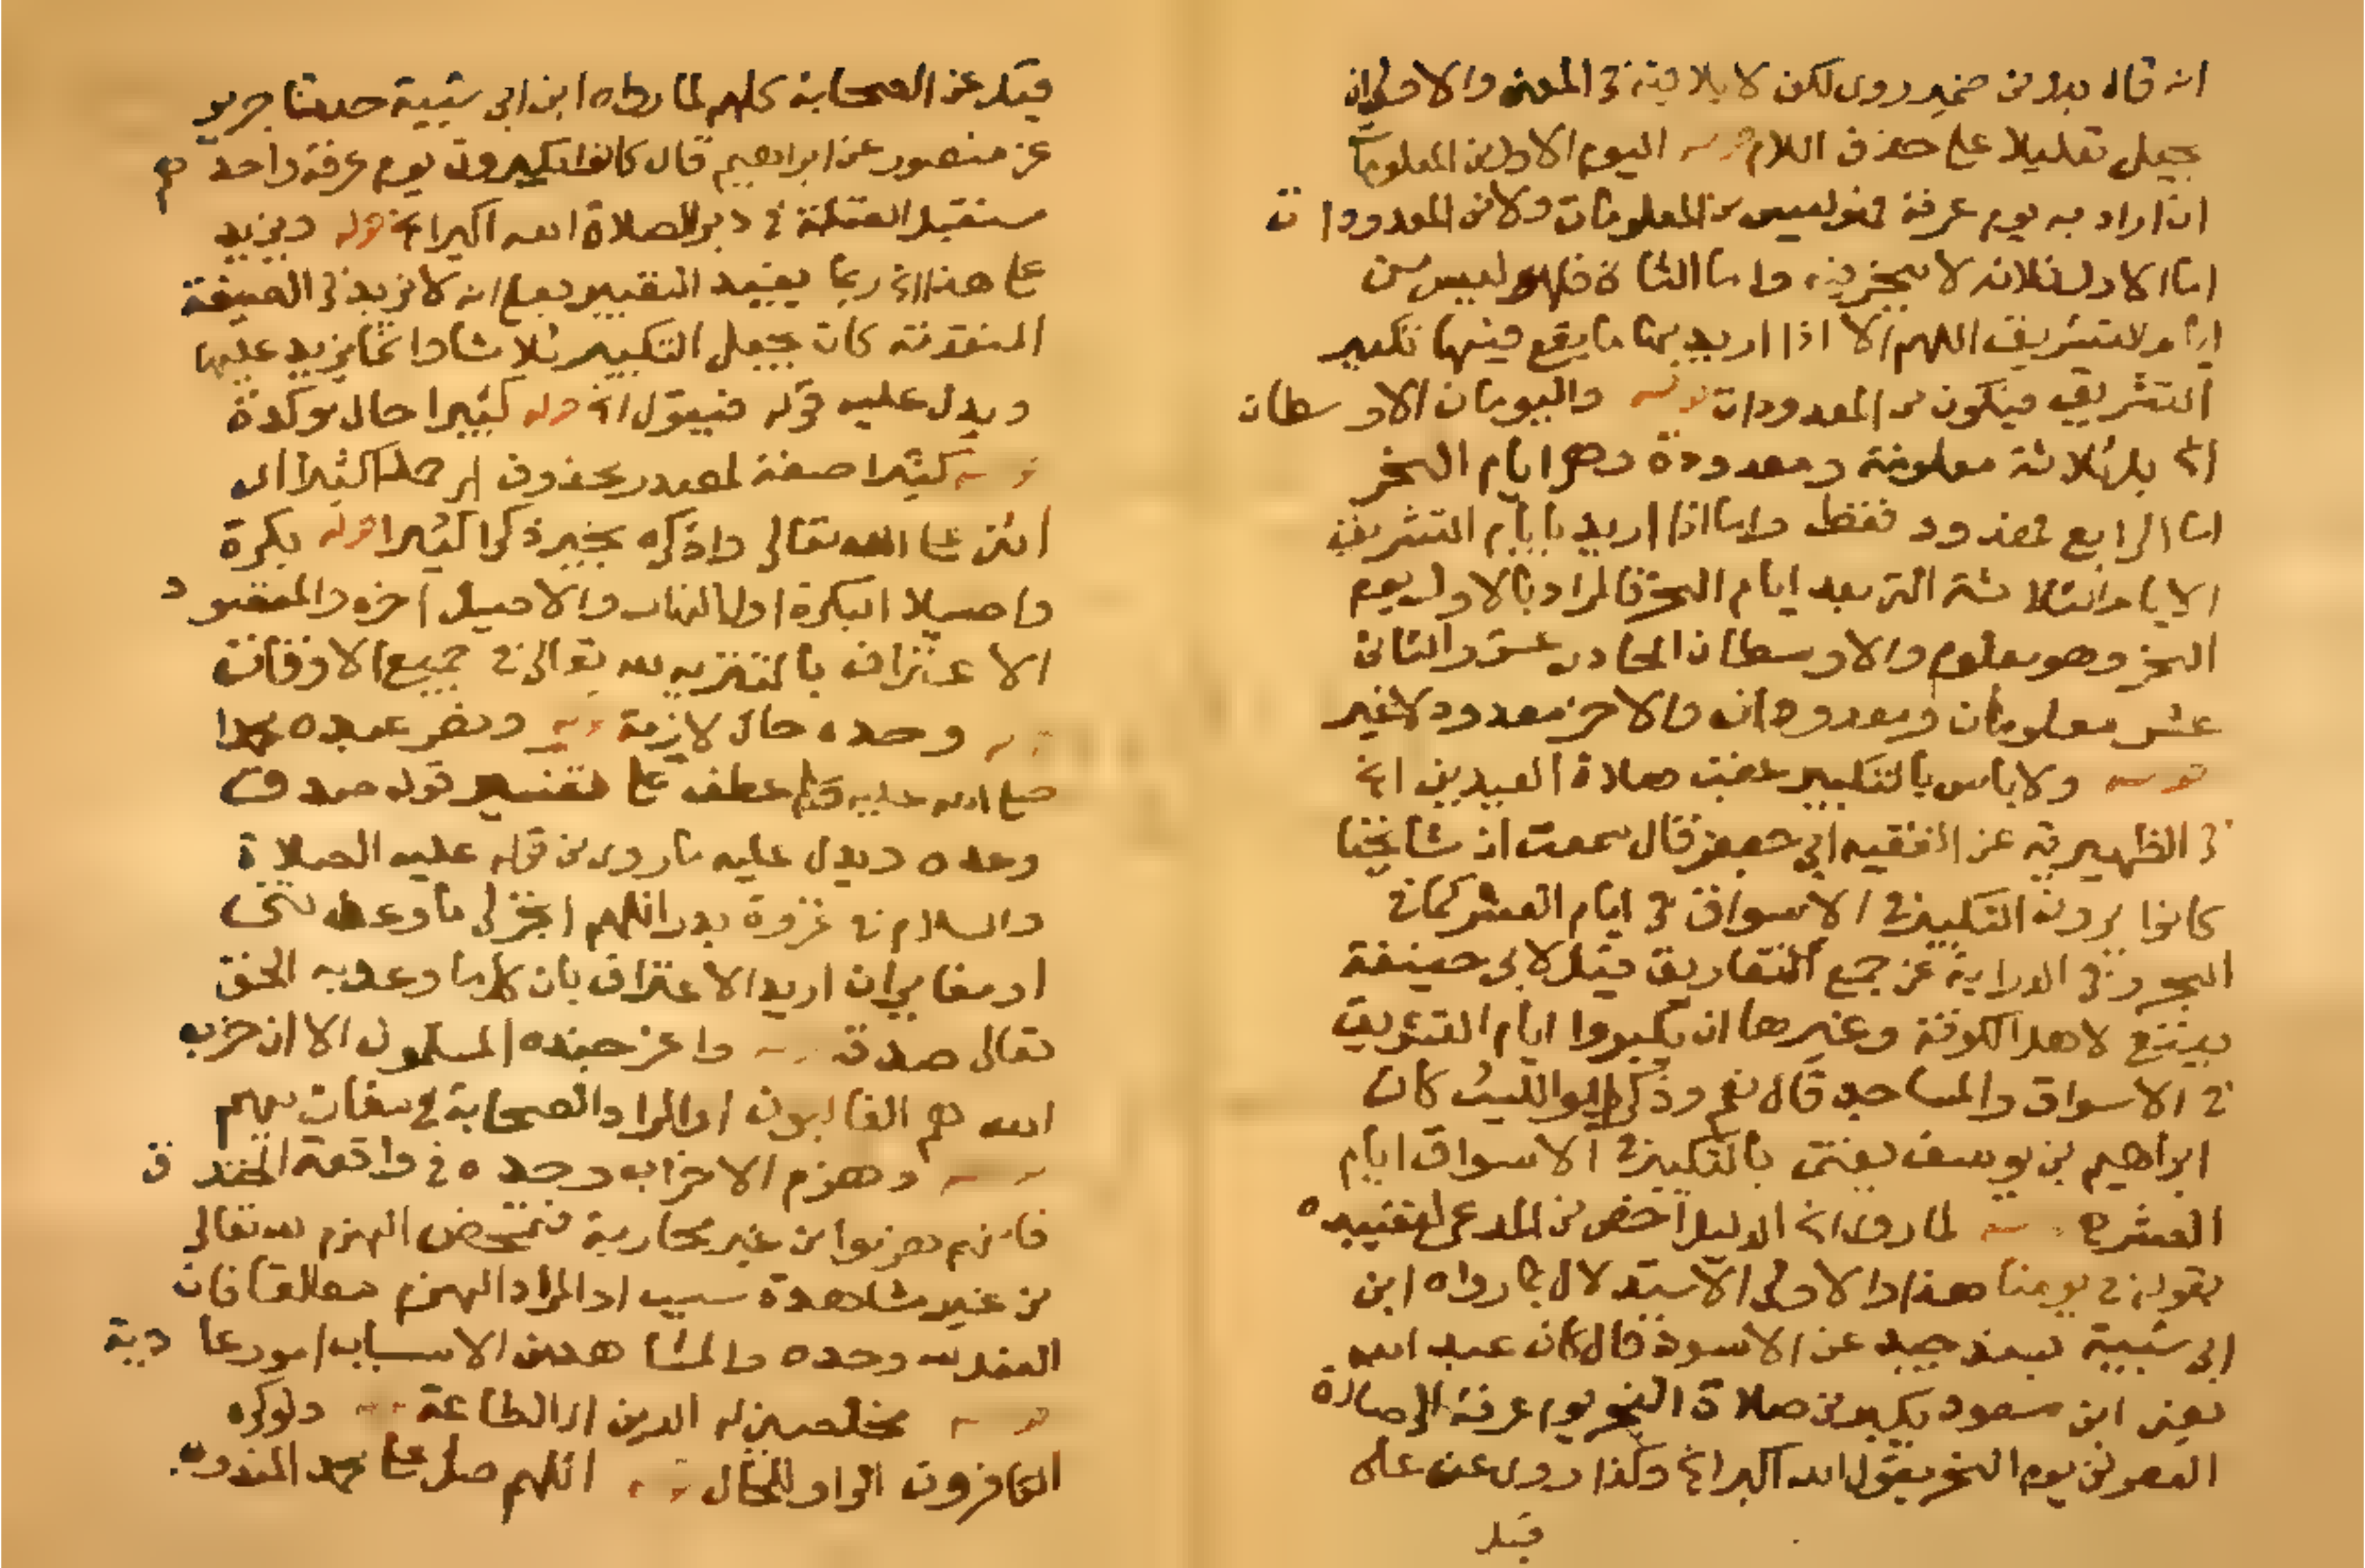 انه قال بدل من ضمير روى لكن لا يلائمه في المعنى والاولى ان
يجعل تعليلا على حذف اللام قوله اليوم الاول من المعلومات
ان اراد به يوم عرفة فهو ليس من المعلومات ولا من المعدودات
اما الاول فلانه لا ينحر فيه واما الثاني فلانه ليس من
ايام التشريق اللهم الا اذا اريد بها ما يقع فيها تكبير
التشريق فيكون من المعدودات قوله واليومان الاوسطان
الخ بل ثلاثة معلومة ومعدودة وهي ايام النحر
اما الرابع فمعدود فقط واما اذا اريد بايام التشريق
الايام الثلاثة التي بعد ايام النحر فالمراد بالاول يوم
النحر وهو معلوم والاوسطان الحادي عشر والثاني
عشر معلومان ومعدودان والاخر معدود لا غير
قوله ولا باس بالتكبير عقب صلاة العيدين الخ
في الظهيرية عن الفقيه ابي جعفر قال سمعت ان مشايخنا
كانوا يرون التكبير في الاسواق في ايام العشر كما في
البحر وفي الدراية عن جمع التفاريق قيل لابي حنيفة
ينبغي لاهل الكوفة وغيرها ان يكبروا ايام التشريق
في الاسواق والمساجد قال نعم وذكر ابو الليث كان
ابراهيم بن يوسف يفتي بالتكبير في الاسواق ايام
العشر ه قوله لما روى الخ الدليل اخص من المدعى لتقييده
بقوله في يومنا هذا والاولى الاستدلال بما رواه ابن
ابي شيبة بسند جيد عن الاسود قال كان عبد الله
يعني ابن مسعود يكبر من صلاة الفجر يوم عرفة الى صلاة
العصر من يوم النحر يقول الله اكبر الخ وكذا روى عن علي
قيل
قيل عن الصحابة كلهم لما رواه ابن ابي شيبة حدثنا جرير
عن منصور عن ابراهيم قال كانوا يكبرون يوم عرفة واحدهم
مستقبل القبلة في دبر الصلاة الله اكبر الخ قوله ويزيد
على هذا الخ ربما يفيد التقييد بعلى انه لا يزيد في الصيغة
المتقدمة كان يجعل التكبير ثلاثا وانما يزيد عليها
ويدل عليه قوله فيقول الخ قوله كبيرا حال موكدة
قوله كثيرا صفة لمصدر محذوف اي حمدا كثيرا اي
اثني على الله تعالى واذكره بخير ذكرا كثيرا قوله بكرة
واصيلا البكرة اول النهار والاصيل اخره والمقصود
الاعتراف بالتنزيه لله تعالى في جميع الاوقات
قوله وحده حال لازمة قوله ونصر عبده محمدا
صلى الله عليه وسلم عطف على تفسير قوله صدق
وعده ويدل عليه ما روى من قوله عليه الصلاة
والسلام في غزوة بدر اللهم انجز لي ما وعدتني
او مغاير ان اريد الاعتراف بان كل ما وعد به الحق
تعالى صدق قوله واعز جنده المسلمون الا ان حزب
الله هم الغالبون او المراد الصحابة في مغازيهم
قوله وهزم الاحزاب وحده في واقعة الخندق
فانهم هزموا من غير محاربة فتمحض الهزم لله تعالى
من غير مشاهدة سبب او المراد الهزم مطلقا فان
الفعل لله وحده والمشاهد من الاسباب امور عادية
قوله مخلصين له الدين اي الطاعة قوله ولو كره
الكافرون الواو للحال قوله اللهم صل على محمد المندوب